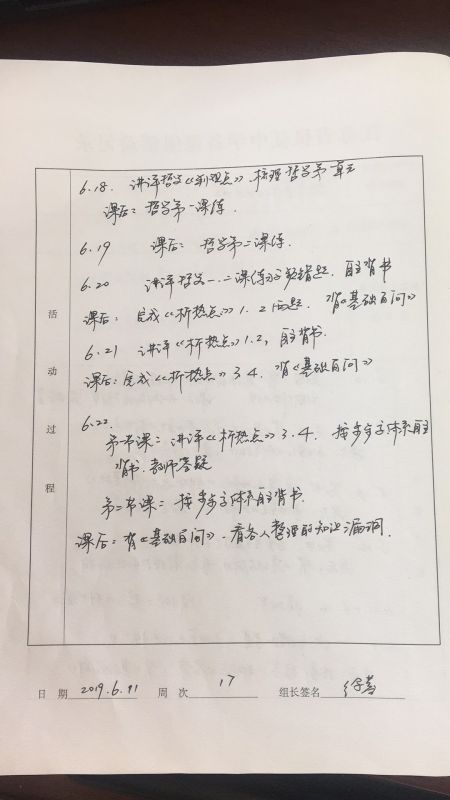 6.18. 讲评哲文《新观点》, 梳理哲学第一单元
课后: 哲学第一课练.
6.19 课后: 哲学第二课练.
6.20 讲评哲文一.二课练习易错题. 自主背书
课后: 完成《析热点》1. 2两题. 背《基础百问》
6.21 讲评《析热点》1.2, 自主背书.
课后: 完成《析热点》3 4. 背《基础百问》
6.22
第一节课: 讲评《析热点》3.4. 按步步高体系自主
背书. 教师答疑
第二节课: 按步步高体系自主背书
课后: 背《基础百问》. 看各人整理的知识漏洞.
活
动
过
程
日 期 2019.6.11 周 次 17 组长签名